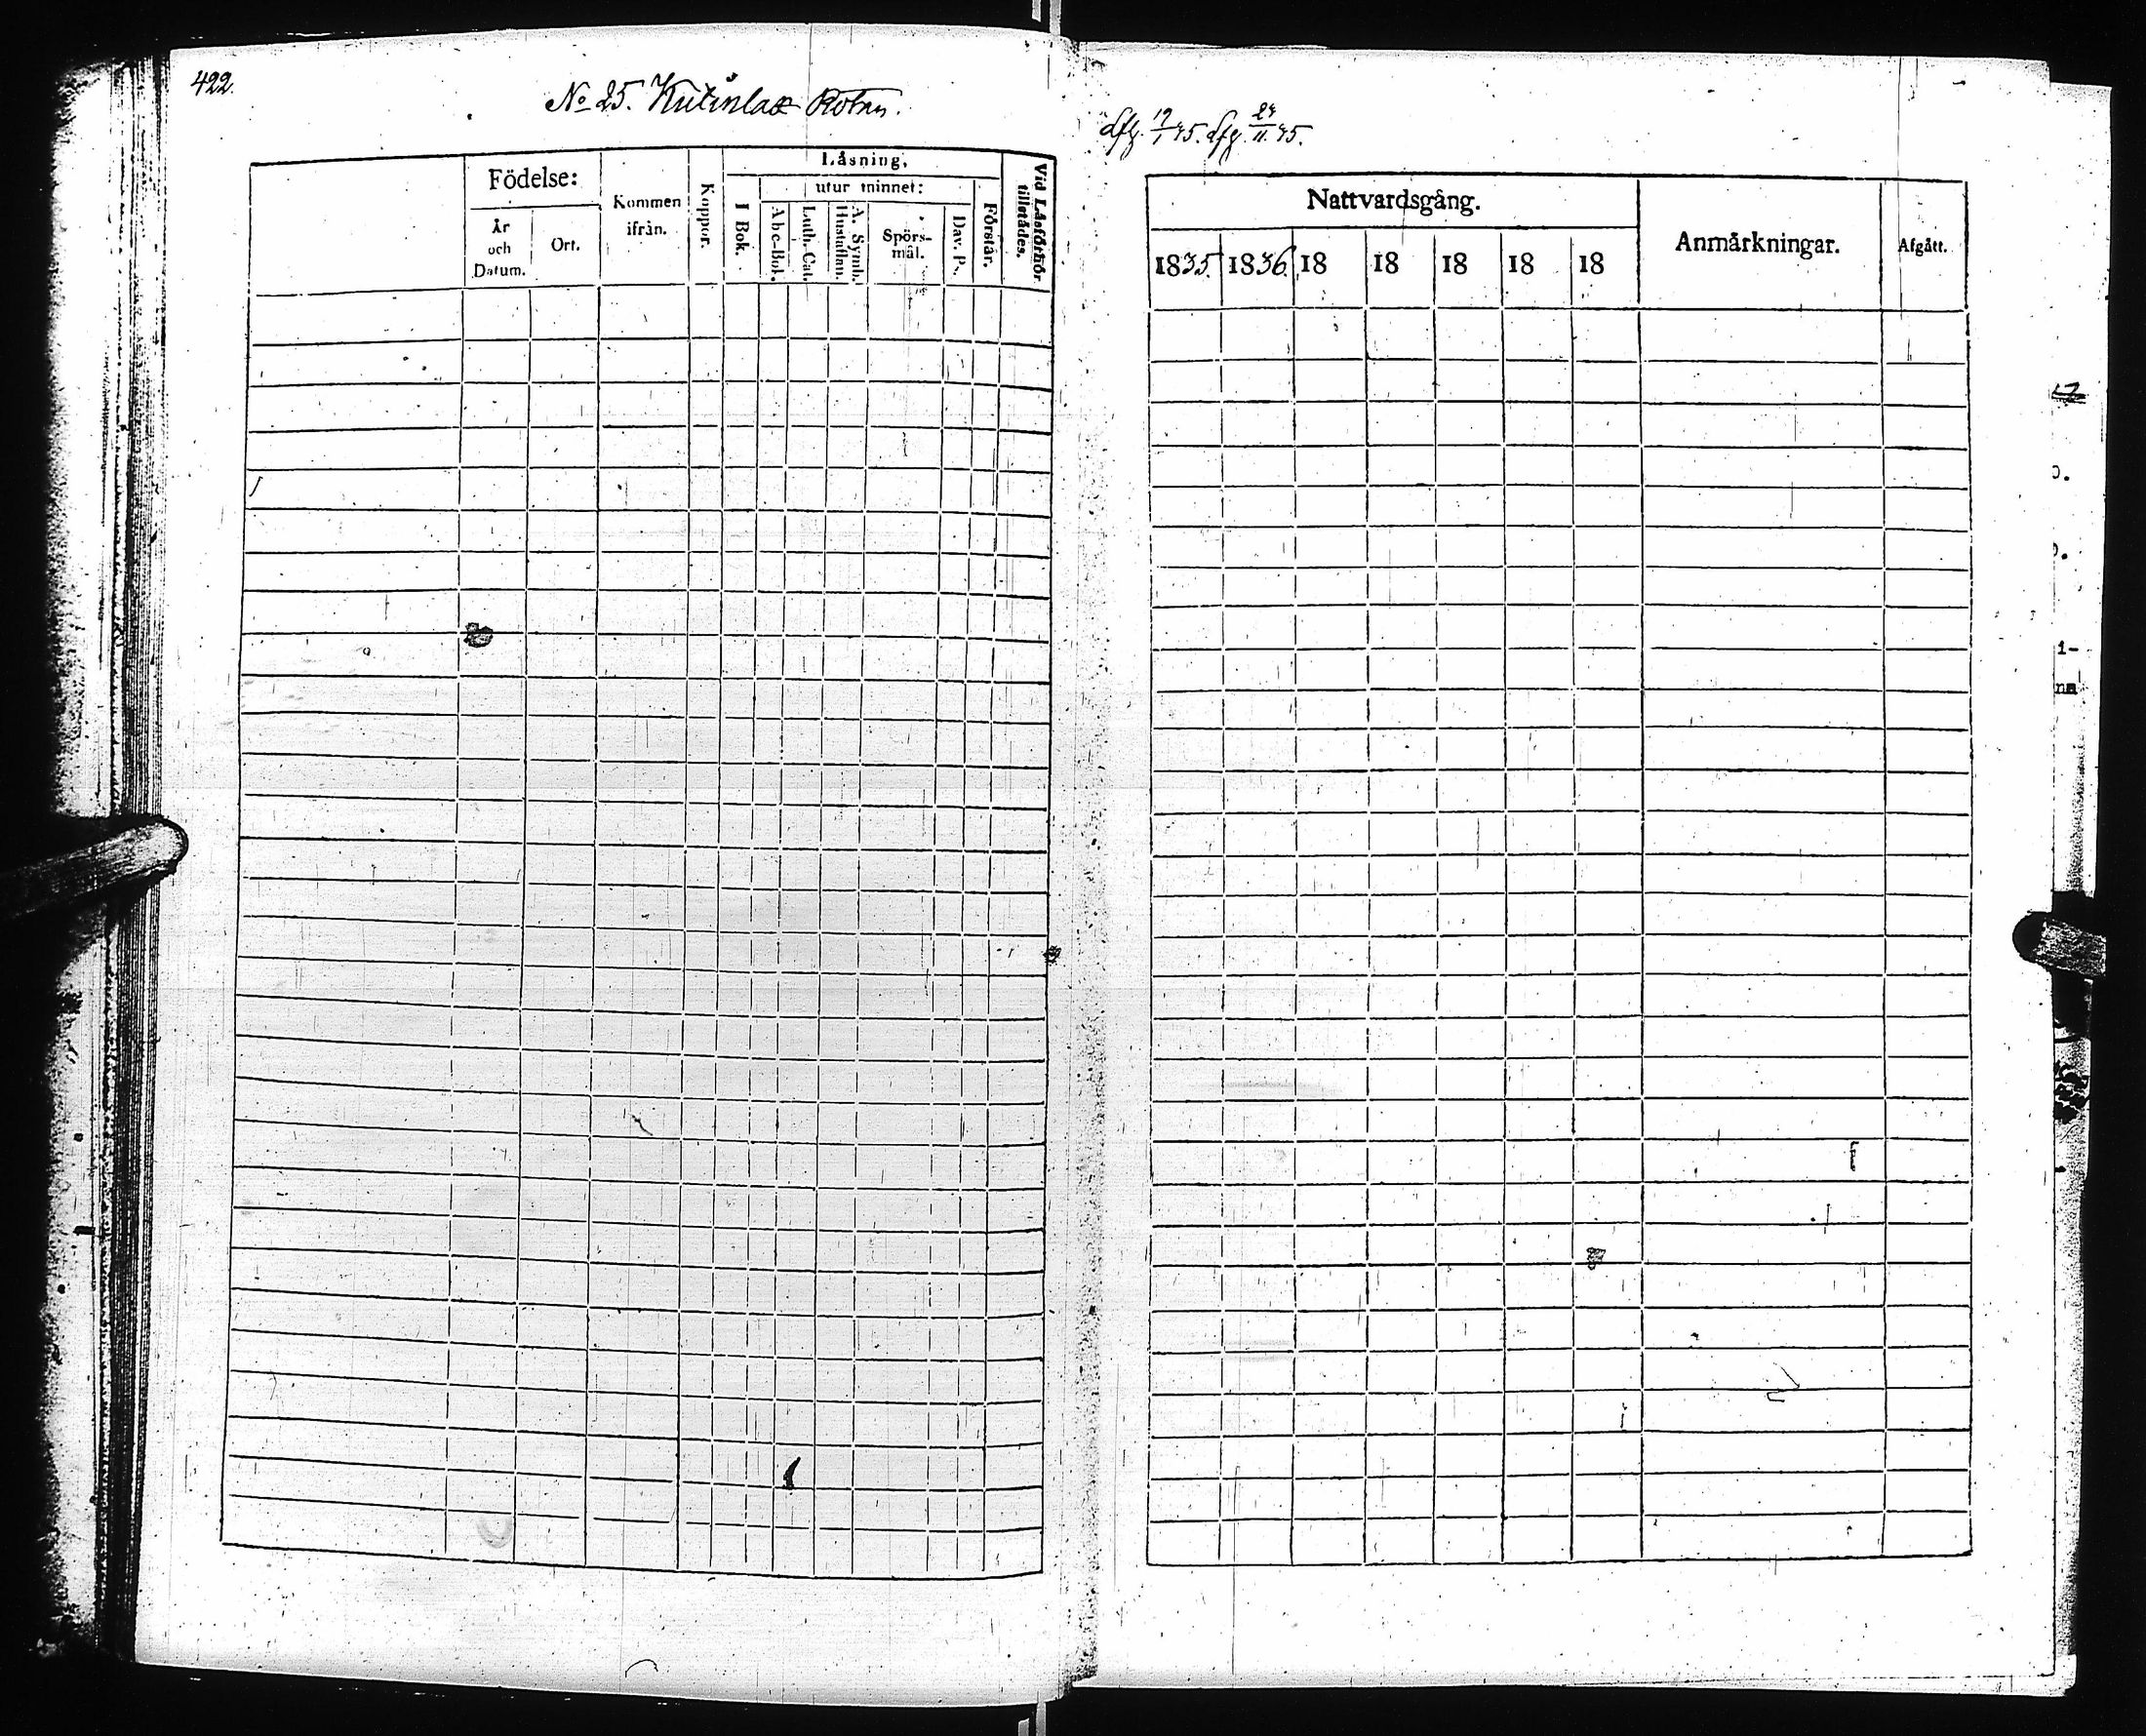 422.
No 25. Kutinlax Rotan.
Födelse:
År och Datum.
Ort.
Kommen ifrån.
Koppor.
Läsning,
I Bok.
utur minnet:
Abc-Bok.
Luth. Cat.
A. Symb. Hustaflan.
Spörsmål.
Dav. Ps.
Förstår.
Vid Läsförhör tillstädes.
Nattvardsgång.
1835. 1836. 18 18 18 18 18
Anmärkningar.
Afgått.